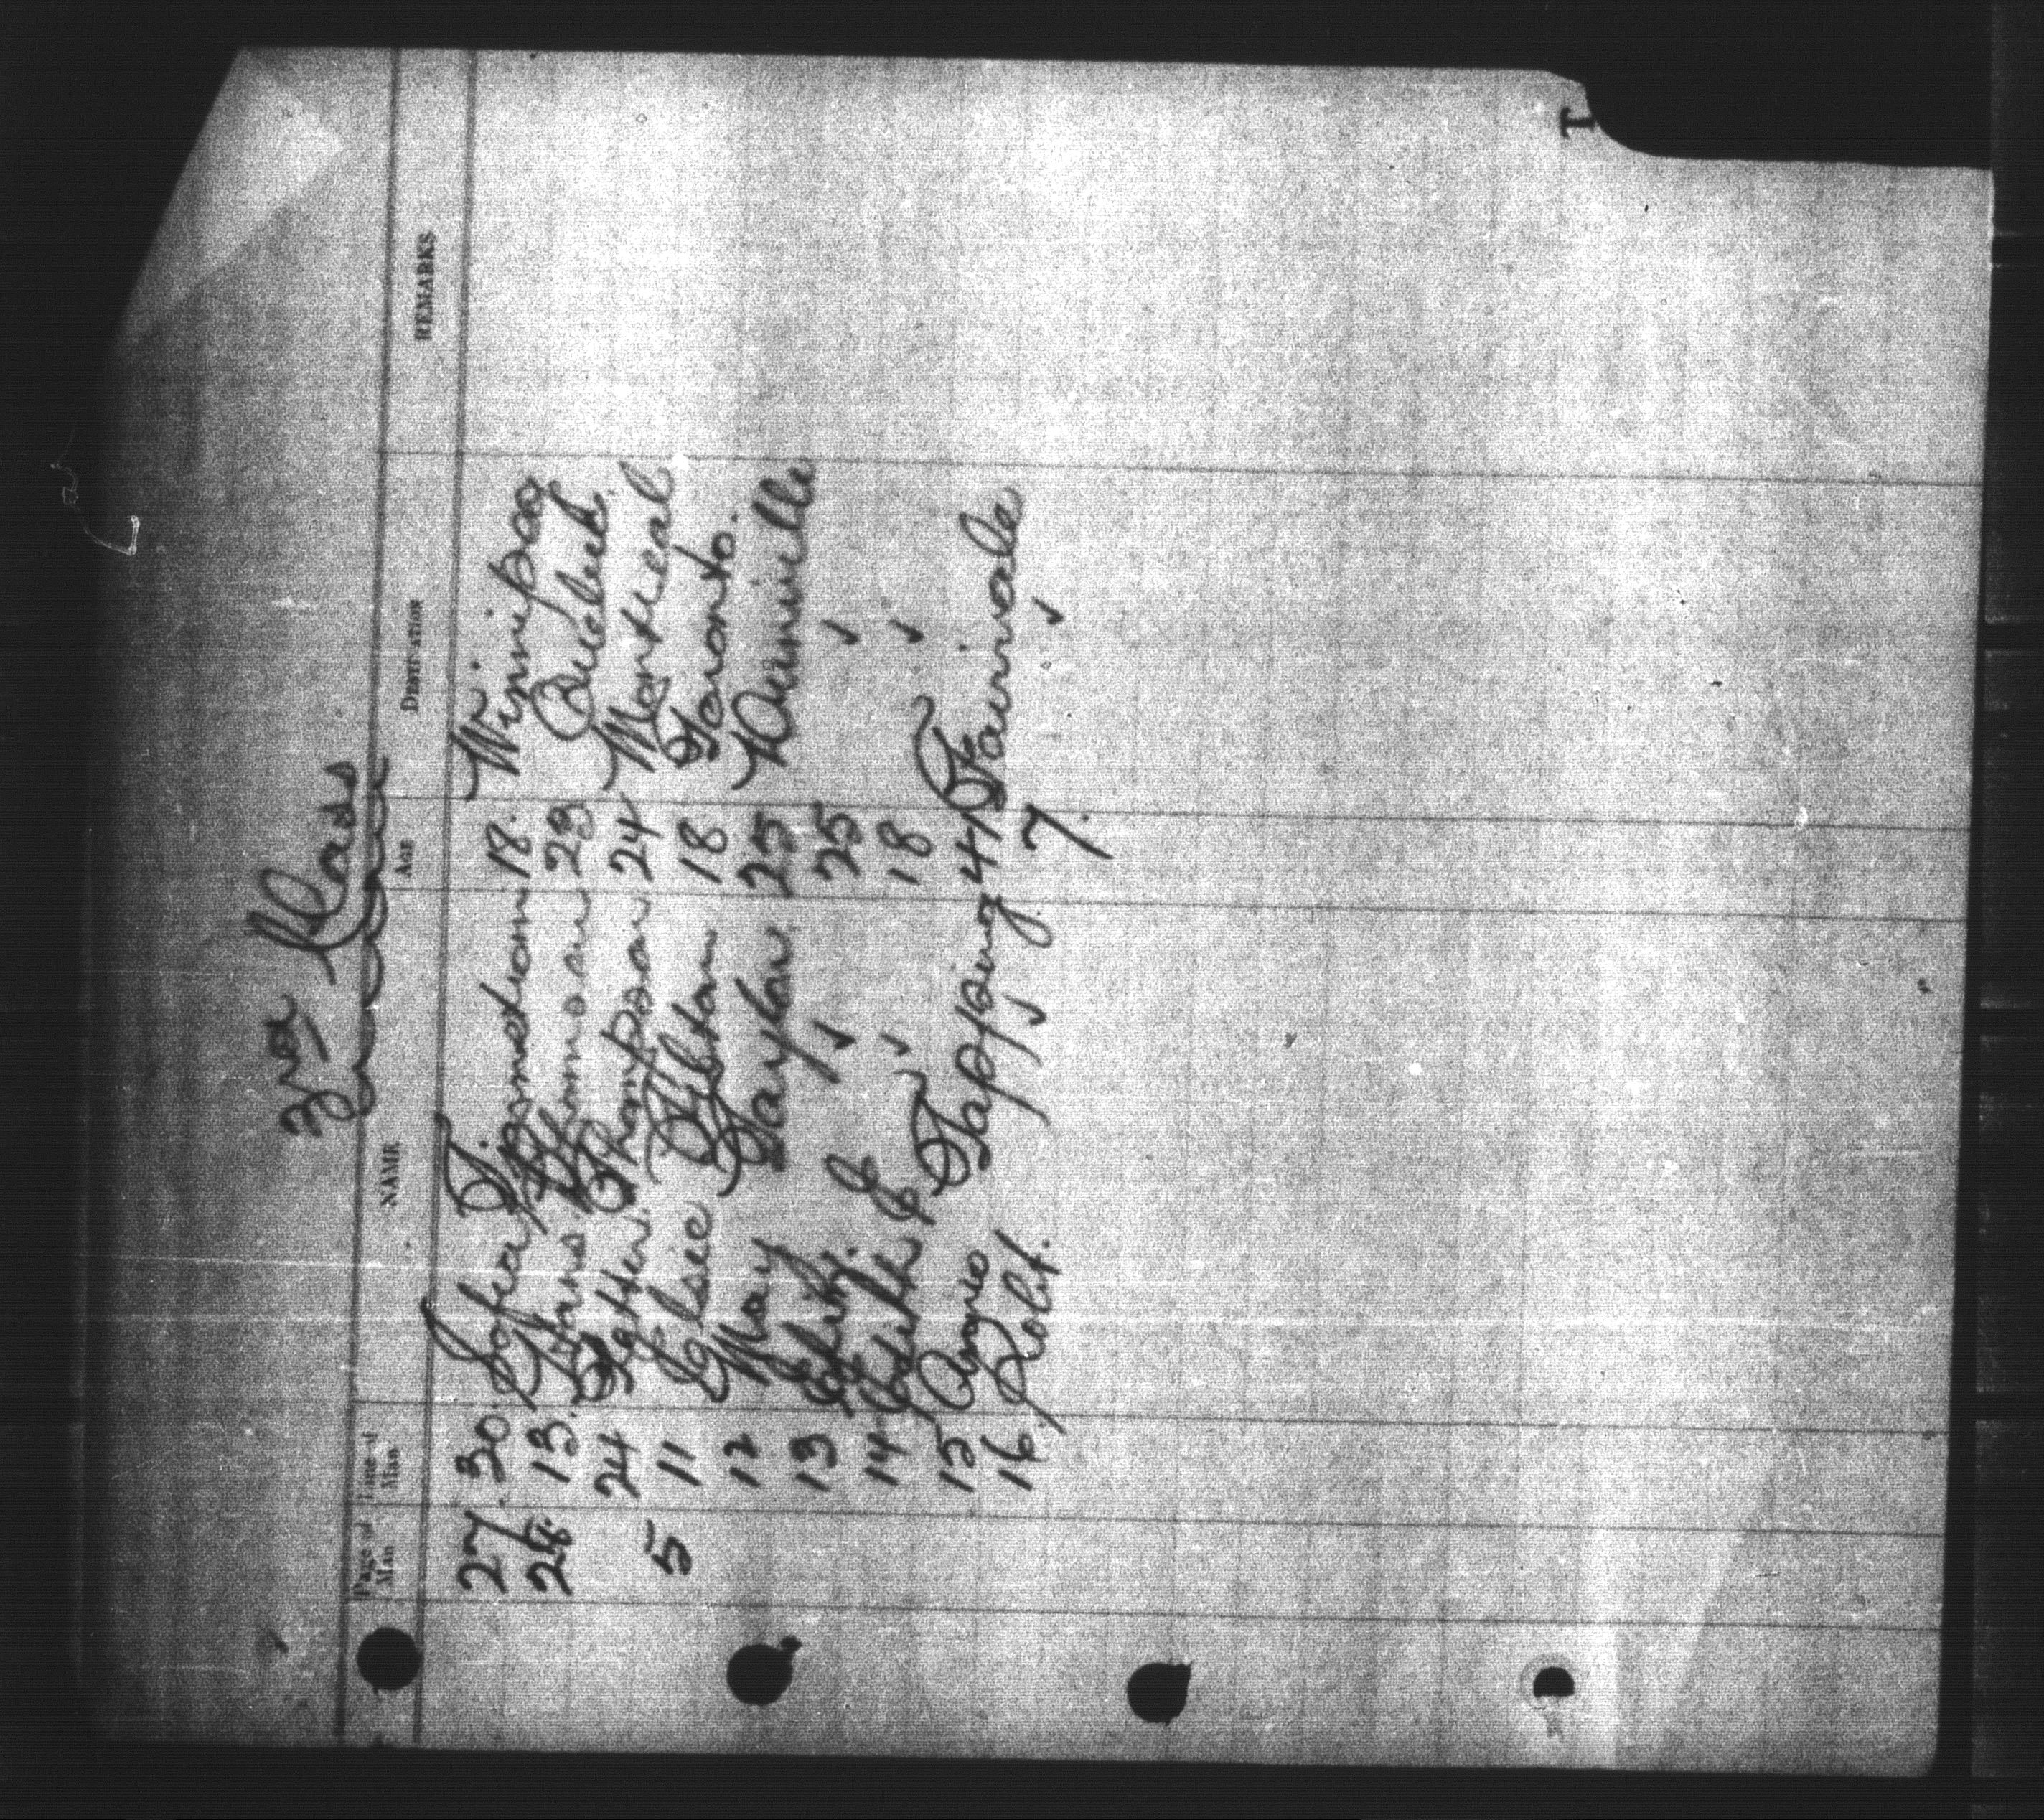 T
3rd Class
Page of Man Line of Man NAME Age Destination REMARKS
27 30. Sofia T. 18. Winnipeg
28. 13. Hans 23 Quebeck.
24 Thompson 24 Montreal
5 11 Elsie 18 Toronto.
12 May Taylor 25 Dunnville
13 ✓ 25 ✓
14 Edith E ✓ 18 ✓
15 Annie Tapping 41 Fairvale
16 Robt. ✓ 7. ✓